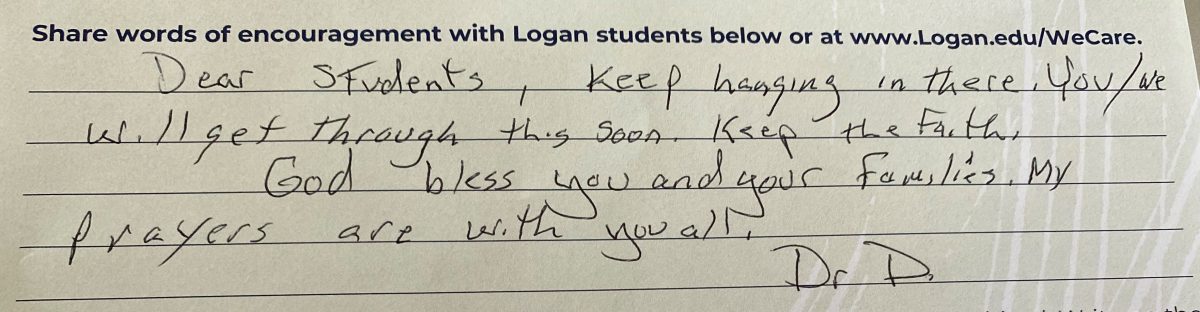 Share words of encouragement with Logan students below or at www.Logan.edu/WeCare.
Dear Students, Keep hanging in there. You/we
will get through this soon. Keep the Faith.
God bless you and your families. My
Prayers are with you all.
Dr D.